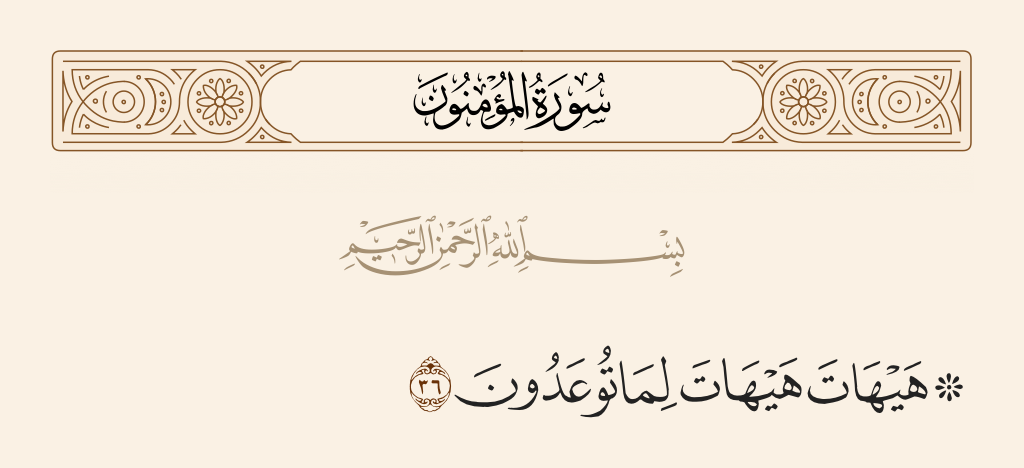 سُورَةُ الْمُؤْمِنُونَ
بِسْمِ ٱللَّهِ ٱلرَّحْمَٰنِ ٱلرَّحِيمِ
۞ هَيْهَاتَ هَيْهَاتَ لِمَا تُوعَدُونَ ٣٦